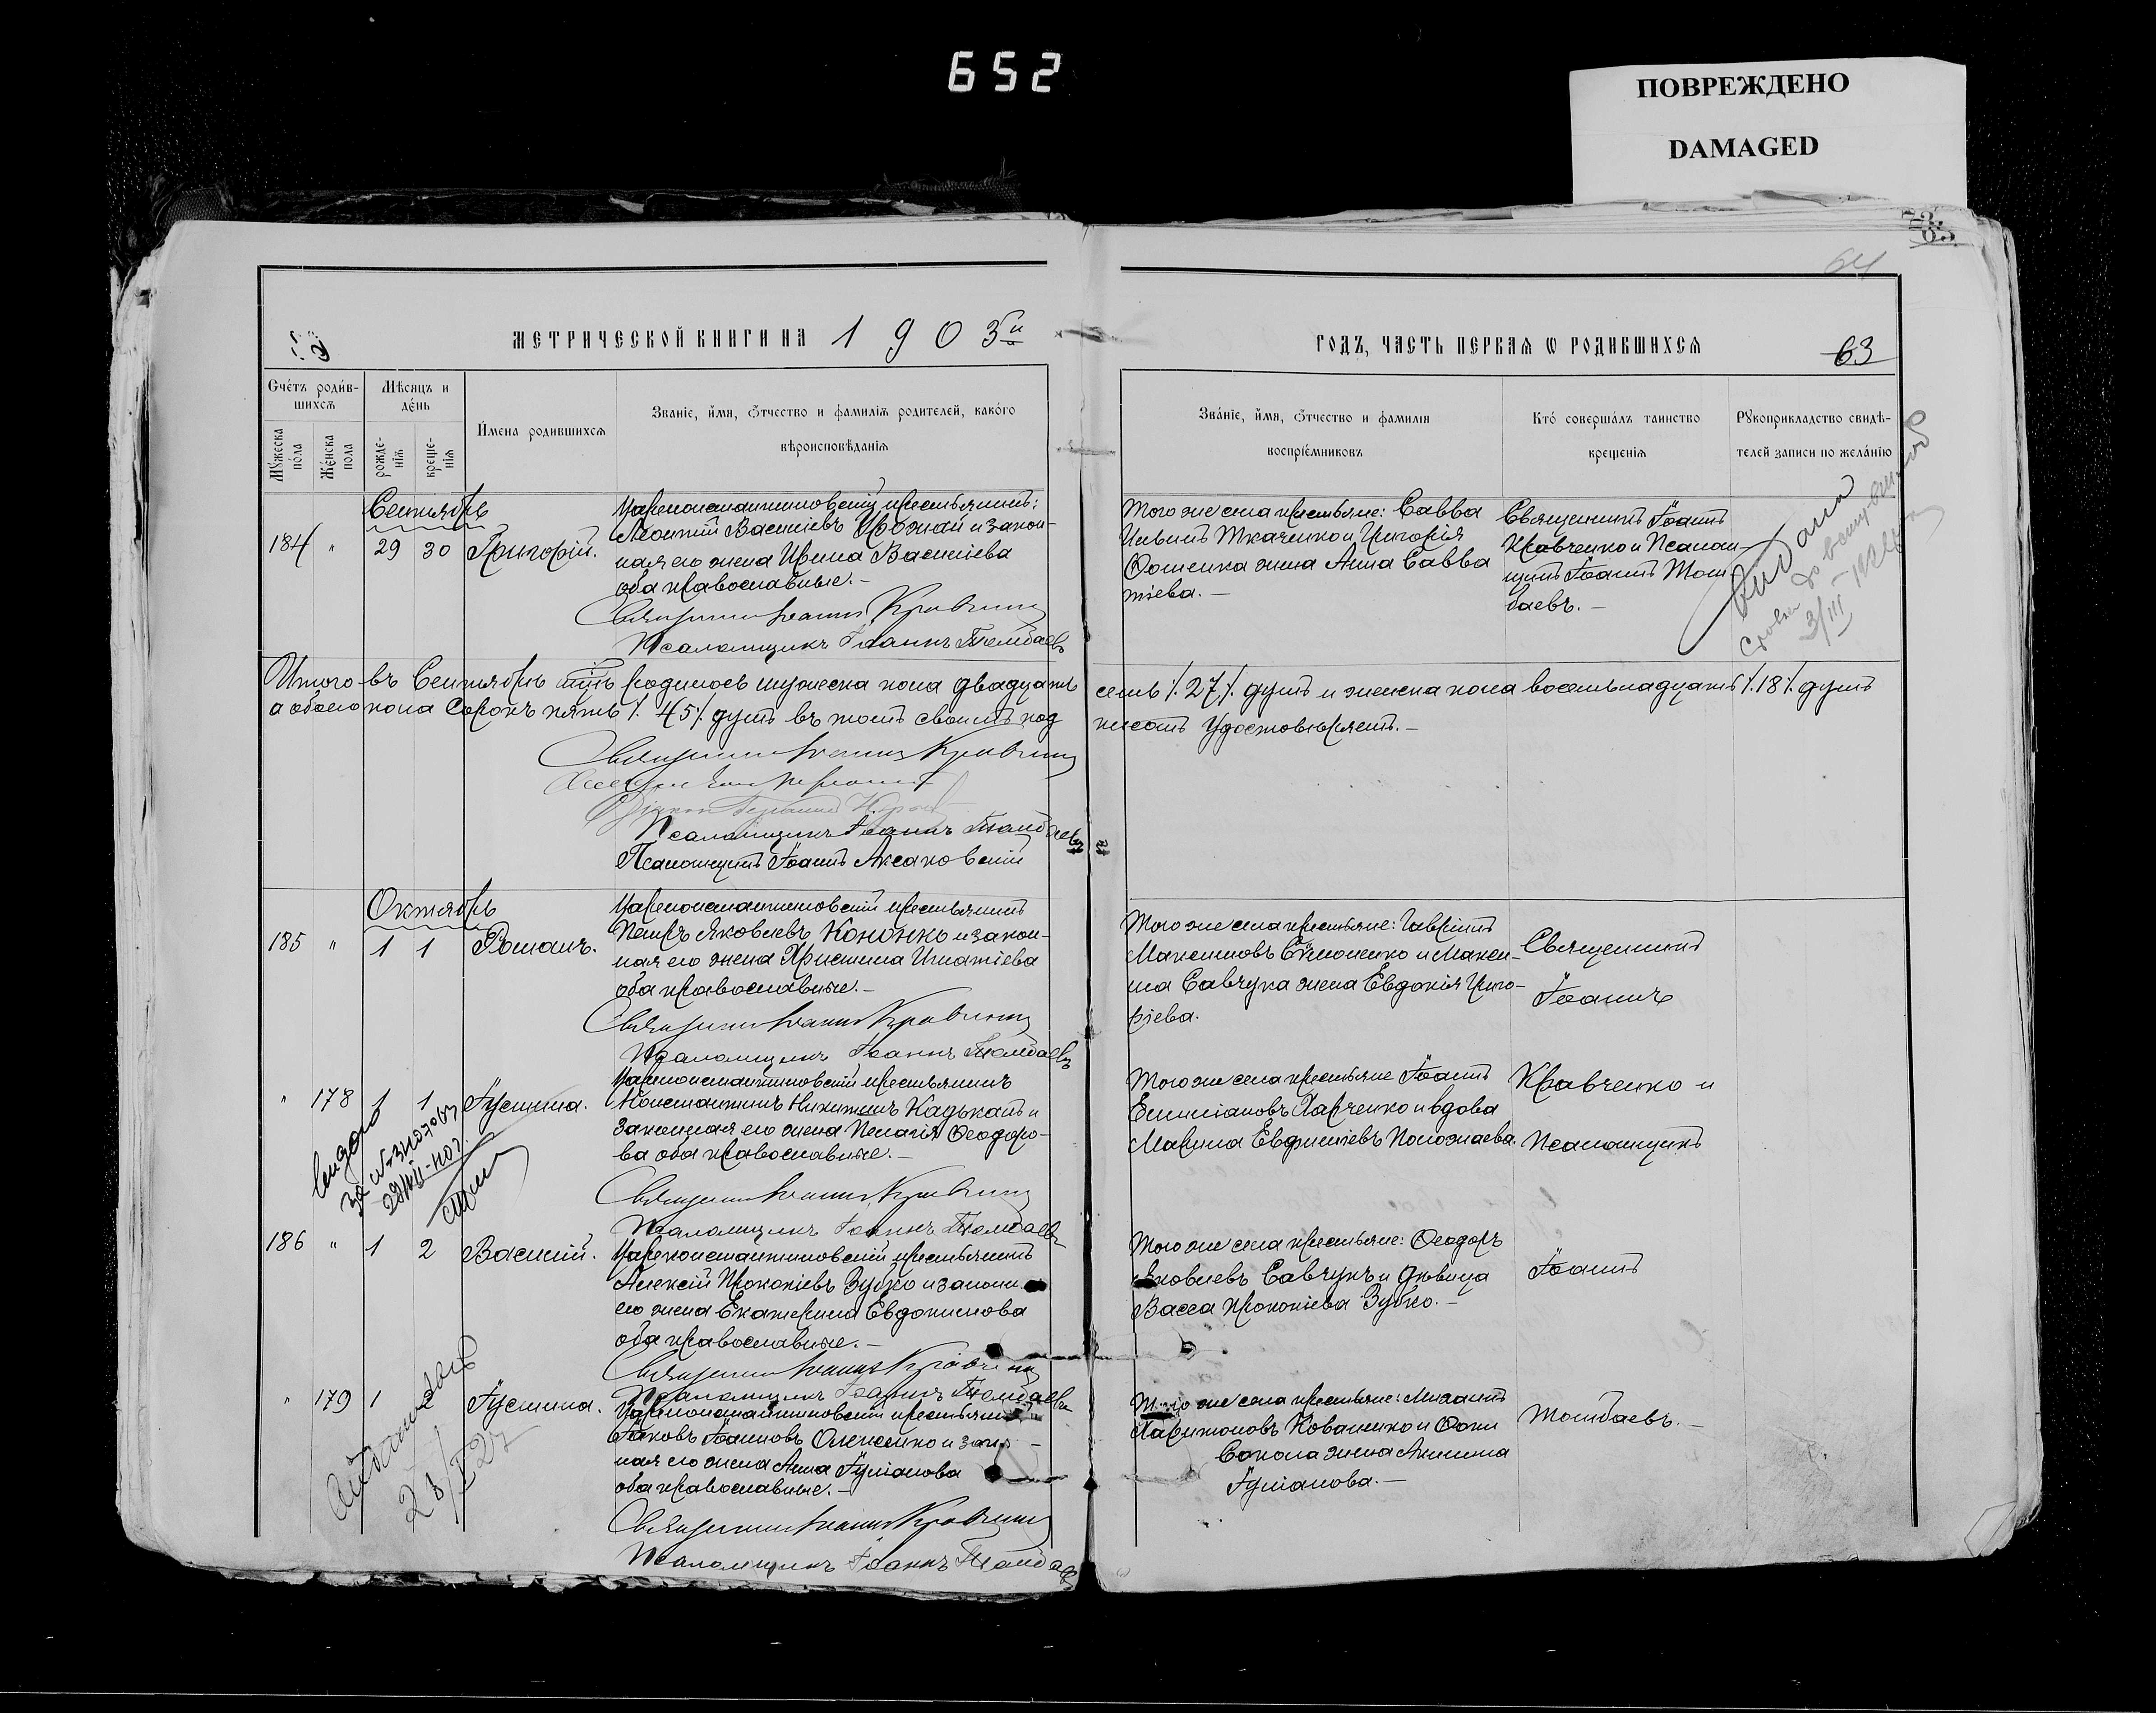 652
ПОВРЕЖДЕНО
DAMAGED
64
МЕТРИЧЕСКОЙ КНИГИ НА 1903й
ГОДЪ, ЧАСТЬ ПЕРВАЯ Ѡ РОДИВШИХСЯ
63
Счетъ родившихся
Мѣсяцъ и день
Имена родившихся
Званіе, имя, отчество и фамилія родителей, какого вѣроисповѣданія
Мужеска пола
Женска пола
рожденія
крещенія
Званіе, имя, отчество и фамилія воспріемниковъ
Кто совершалъ таинство крещенія
Рукоприкладство свидѣтелей записи по желанію
Сентябрь
184 " 29 30 Григорій.
Цареконстантиновскій крестьянинъ:
Леонтій Васильевъ Урожай и закон-
ная его жена Ирина Васильева
оба православные.-
Священникъ Іоаннъ Кравченко
Псаломщикъ Іоаннъ Томбаевъ
Того же села крестьяне: Савва
Ткаченко и Григорія
жена Анна Савва
тіева.-
Священникъ Іоаннъ
Кравченко и Псалом-
щикъ Іоаннъ Том-
баевъ.-
3/III
Итого въ Сентябрѣ родилось мужеска пола двадцать
семь /.27/. душъ и женска пола восемьнадцать /.18/. душъ
а обоего пола Сорокъ пять /. 45/. душъ въ томъ своимъ под
писомъ Удостовѣряемъ.-
Священникъ Іоаннъ Кравченко
Псаломщикъ Іоаннъ Томбаевъ
Псаломщикъ Іоаннъ Аксаковскій
Октябрь
185 " 1 1 Романъ.
Цареконстантиновскій крестьянинъ
Петръ Яковлевъ Кононко и закон-
ная его жена Христина Игнатіева
оба православные.-
Священникъ Іоаннъ Кравченко
Псаломщикъ Іоаннъ Томбаевъ
Того же села крестьяне: Гавріилъ
Максимовъ и Макси-
ма Савчука жена Евдокія Григо-
ріева.
Священникъ
Іоаннъ
" 178 1 1 Іустина.
Цареконстантиновскій крестьянинъ
Константинъ Никитинъ Кадькалъ и
законная его жена Пелагія Ѳеодоро-
ва оба православные.-
Священникъ Іоаннъ Кравченко
Псаломщикъ Іоаннъ Томбаевъ
Того же села крестьяне Іоаннъ
Емиліановъ Харченко и вдова
Марина
Кравченко и
Псаломщикъ
186 " 1 2 Василій.
Цареконстантиновскій крестьянинъ
Алексій Прокопіевъ Зубко и законн
его жена Екатерина Евдокимова
оба православные.-
Священникъ Іоаннъ Кравченко
Псаломщикъ Іоаннъ Томбаевъ
Того же села крестьяне: Ѳеодоръ
Яковлевъ Савчукъ и дѣвица
Васса Прокопіева Зубко.-
Іоаннъ
" 179 1 2 Іустина.
Цареконстантиновскій крестьянинъ
Іаковъ Іоанновъ Олексенко и закон-
ная его жена Анна Іуліанова
оба православные.-
Священникъ Іоаннъ Кравченко
Псаломщикъ Іоаннъ Томбаевъ
Того же села крестьяне: Михаилъ
Харитоновъ Коваленко и Ѳомы
Сокола жена Акилина
Іуліанова.-
Томбаевъ.-